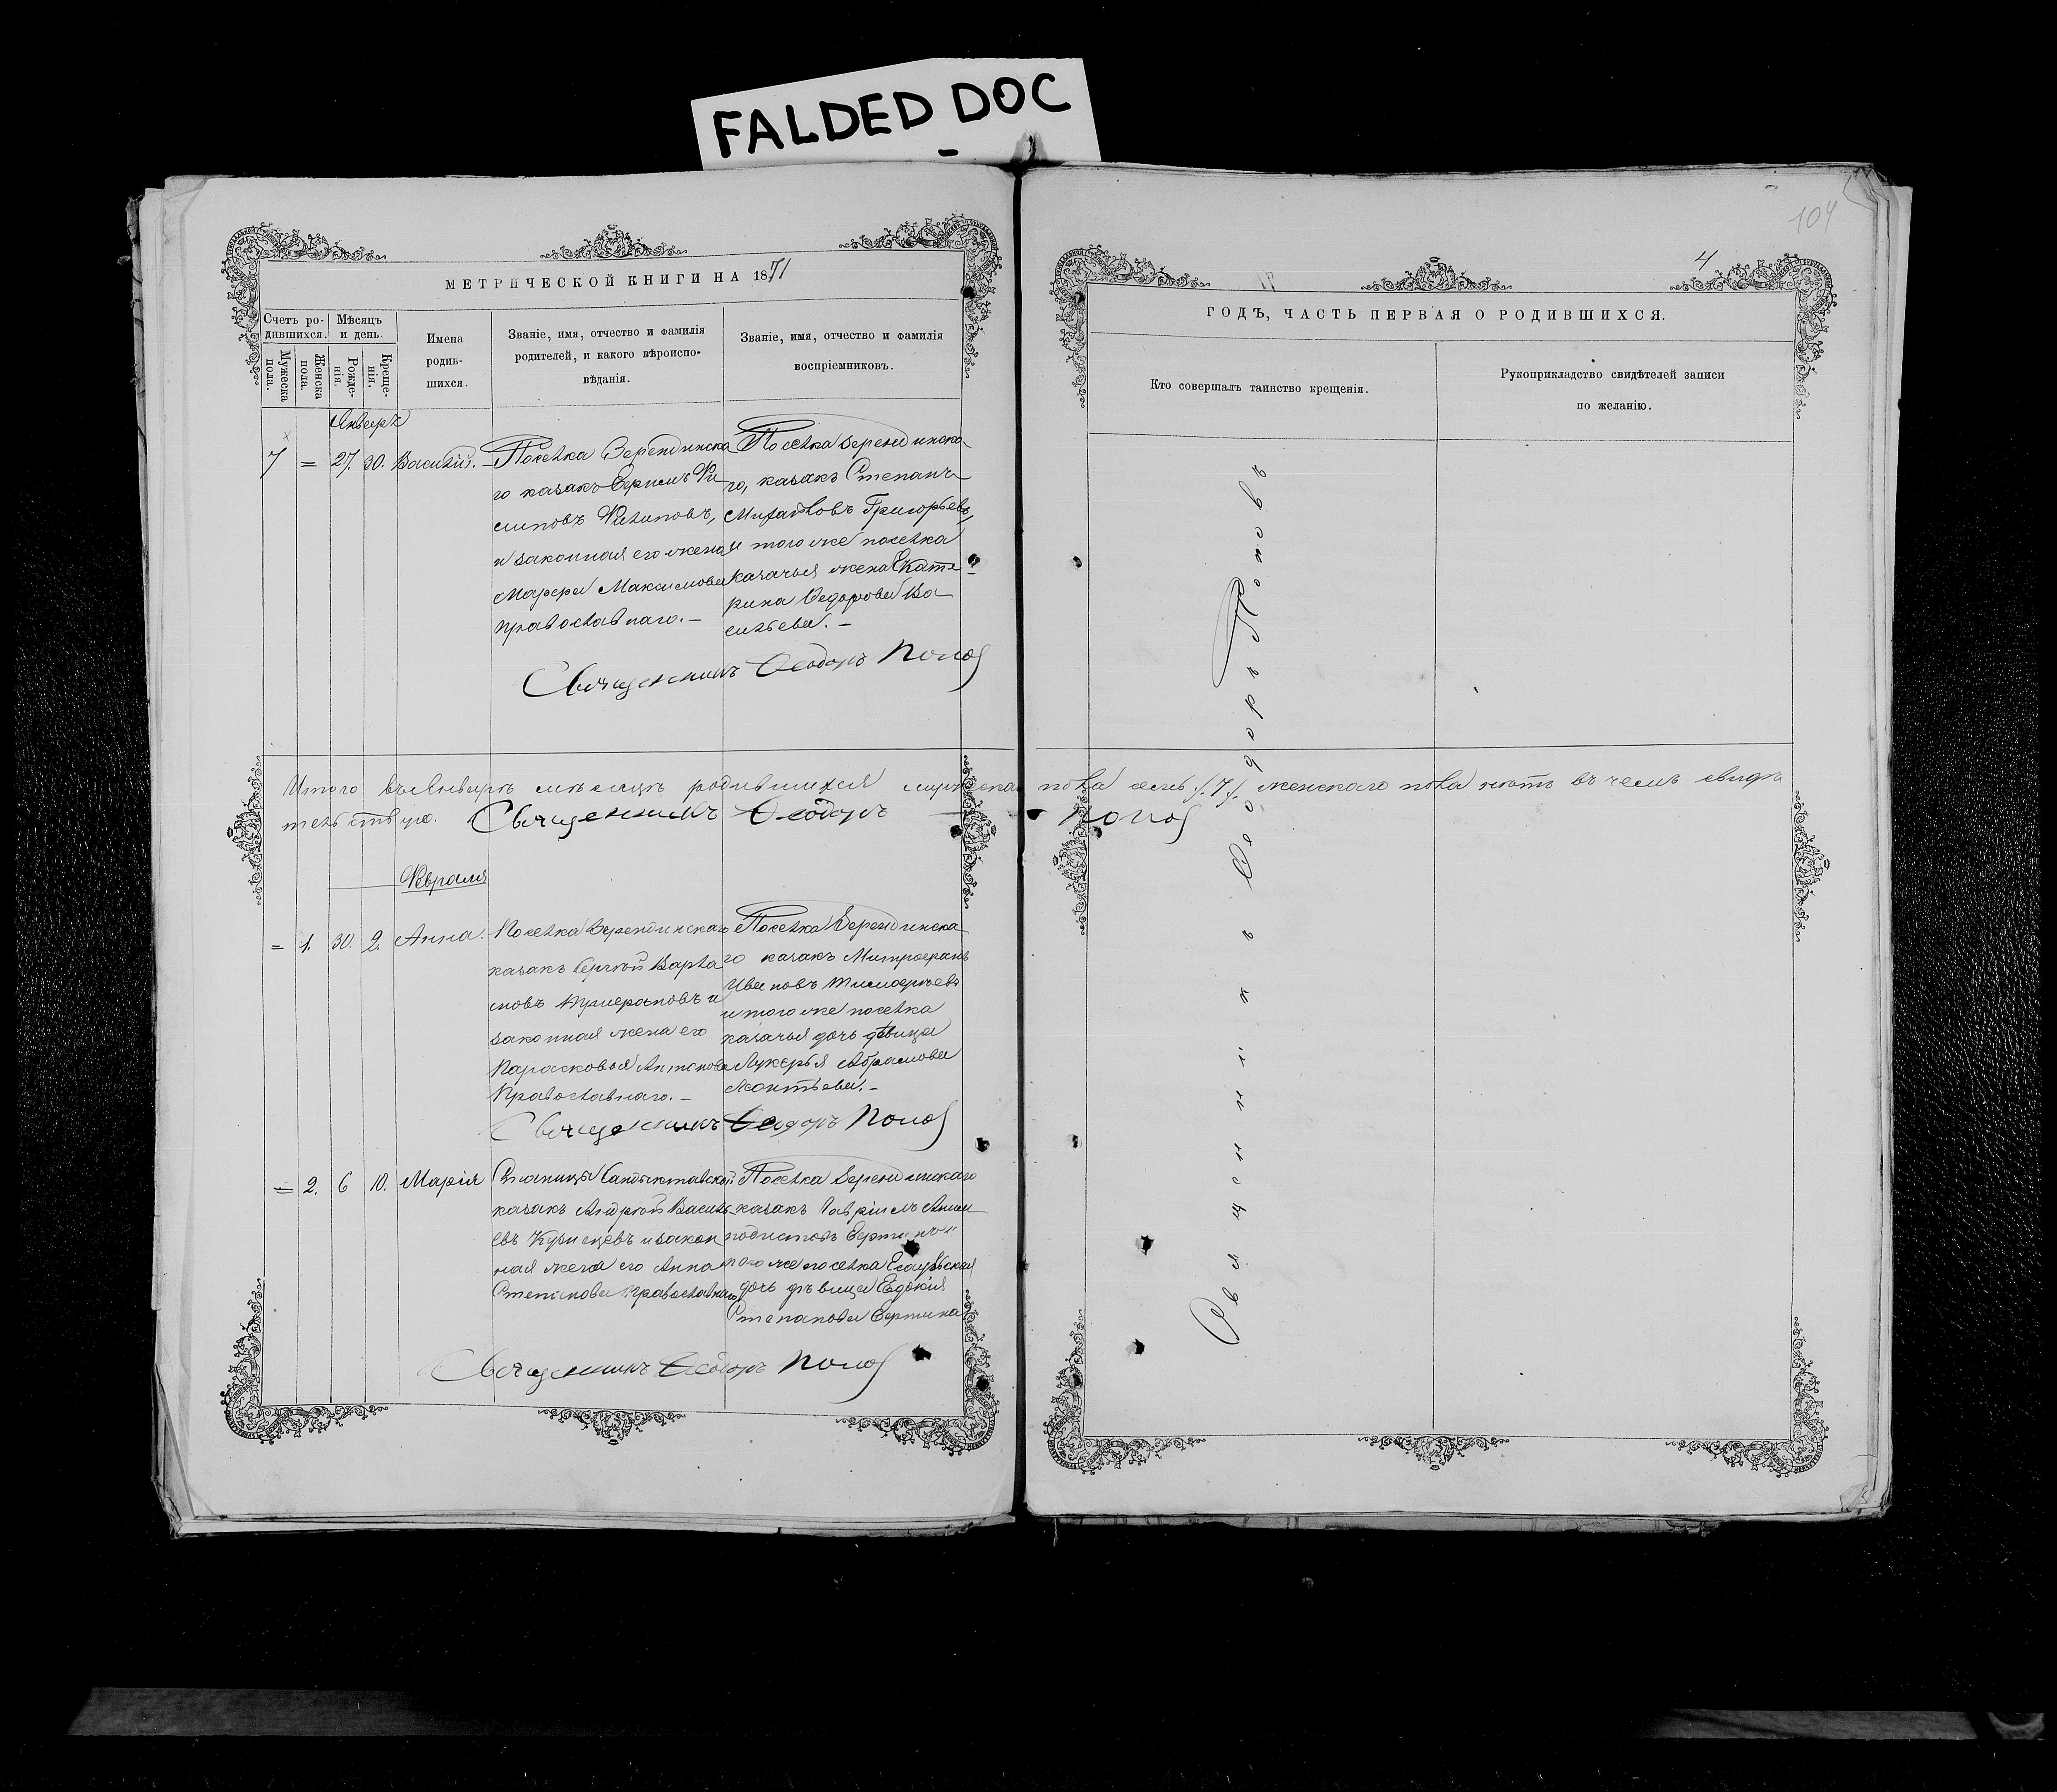 FALDED DOC
104
4
МЕТРИЧЕСКОЙ КНИГИ НА 1871
Счетъ ро-
дившихся.
Мѣсяцъ
и день.
Мужеска
пола.
Женска
пола.
Рожде-
нія.
Креще-
нія.
Имена
родив-
шихся.
Званіе, имя, отчество и фамилія
родителей, и какого вѣроиспо-
вѣданія.
Званіе, имя, отчество и фамилія
воспріемниковъ.
Январь
7 = 27. 30. Василій.
Поселка Зерендинска
го казакъ Ефимъ Фи
липовъ Филиповъ,
и законная его жена
Марфа Максимова
православнаго. —
Поселка Зерендинска
го, казакъ Степанъ
Михайловъ Григорьевъ,
и того же поселка
казачья жена Екате
рина Федорова Ва
сильева. —
Священникъ Феодоръ Попов
Итого въ Январѣ мѣсяцѣ родившихся мужеска пола семь /.7./. женскаго пола нѣтъ въ чемъ свидѣ
тельствую. Священникъ Феодоръ Попов
Февраля
= 1. 30. 2. Анна.
Поселка Зерендинскаго
казакъ Сергѣй Варла
мовъ и
законная жена его
Парасковья Антонова
Православнаго. —
Поселка Зерендинска
го казакъ Митрофанъ
Ивановъ Тимофеевъ
и того же поселка
казачья дочь дѣвица
Лукерья Абрамова
Леонтьева. —
Священникъ Феодоръ Попов
= 2. 6 10. Марія
Станицы Сандыктавской
казакъ Андрей Василь
евъ Кузнецовъ и закон
ная жена его Анна
Степанова православнаго
Поселка Зерендинскаго
казакъ Гавріилъ
того же поселка Есаульская
дочь дѣвица Евдокія
Степанова
Священникъ Феодоръ Попов
ГОДЪ, ЧАСТЬ ПЕРВАЯ О РОДИВШИХСЯ.
Кто совершалъ таинство крещенія.
Рукоприкладство свидѣтелей записи
по желанію.
Священникъ Феодоръ Поповъ